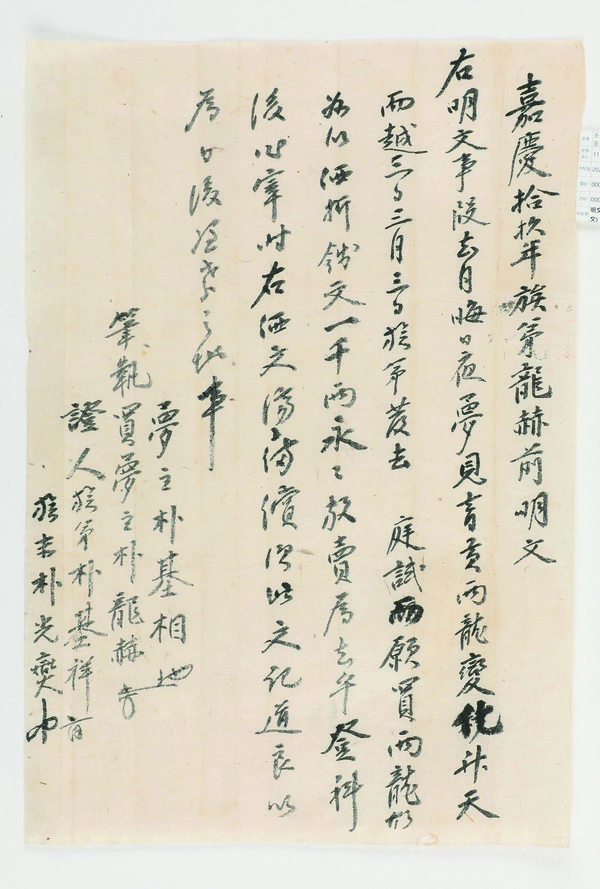 嘉慶拾玖年族弟龍赫前明文
右明文事段去月晦日夜夢見青黃兩龍變化升天
而越三日三月三日族弟發去 庭試而願買兩龍
以価折錢文一千兩永〻放賣爲去乎登科
後 宰時右価文 備償次此文記導良以
爲日後憑考之地事
夢主朴基相
筆執買夢主朴龍赫
證人族弟朴基祥
族末朴光